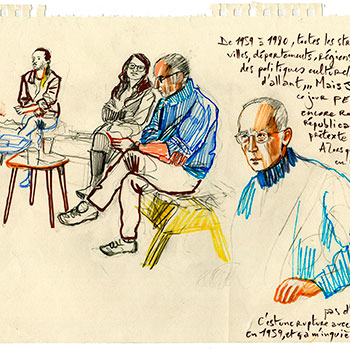 De 1959 à 1980, toutes les stra
villes, départements, régions
des politiques culturel
d'allant,,, Mais J
ce jour PE
encore RA
Républica
prétexte
Alors q
en
pas d'
C'est une rupture avec
en 1959, et ça m'inquiè